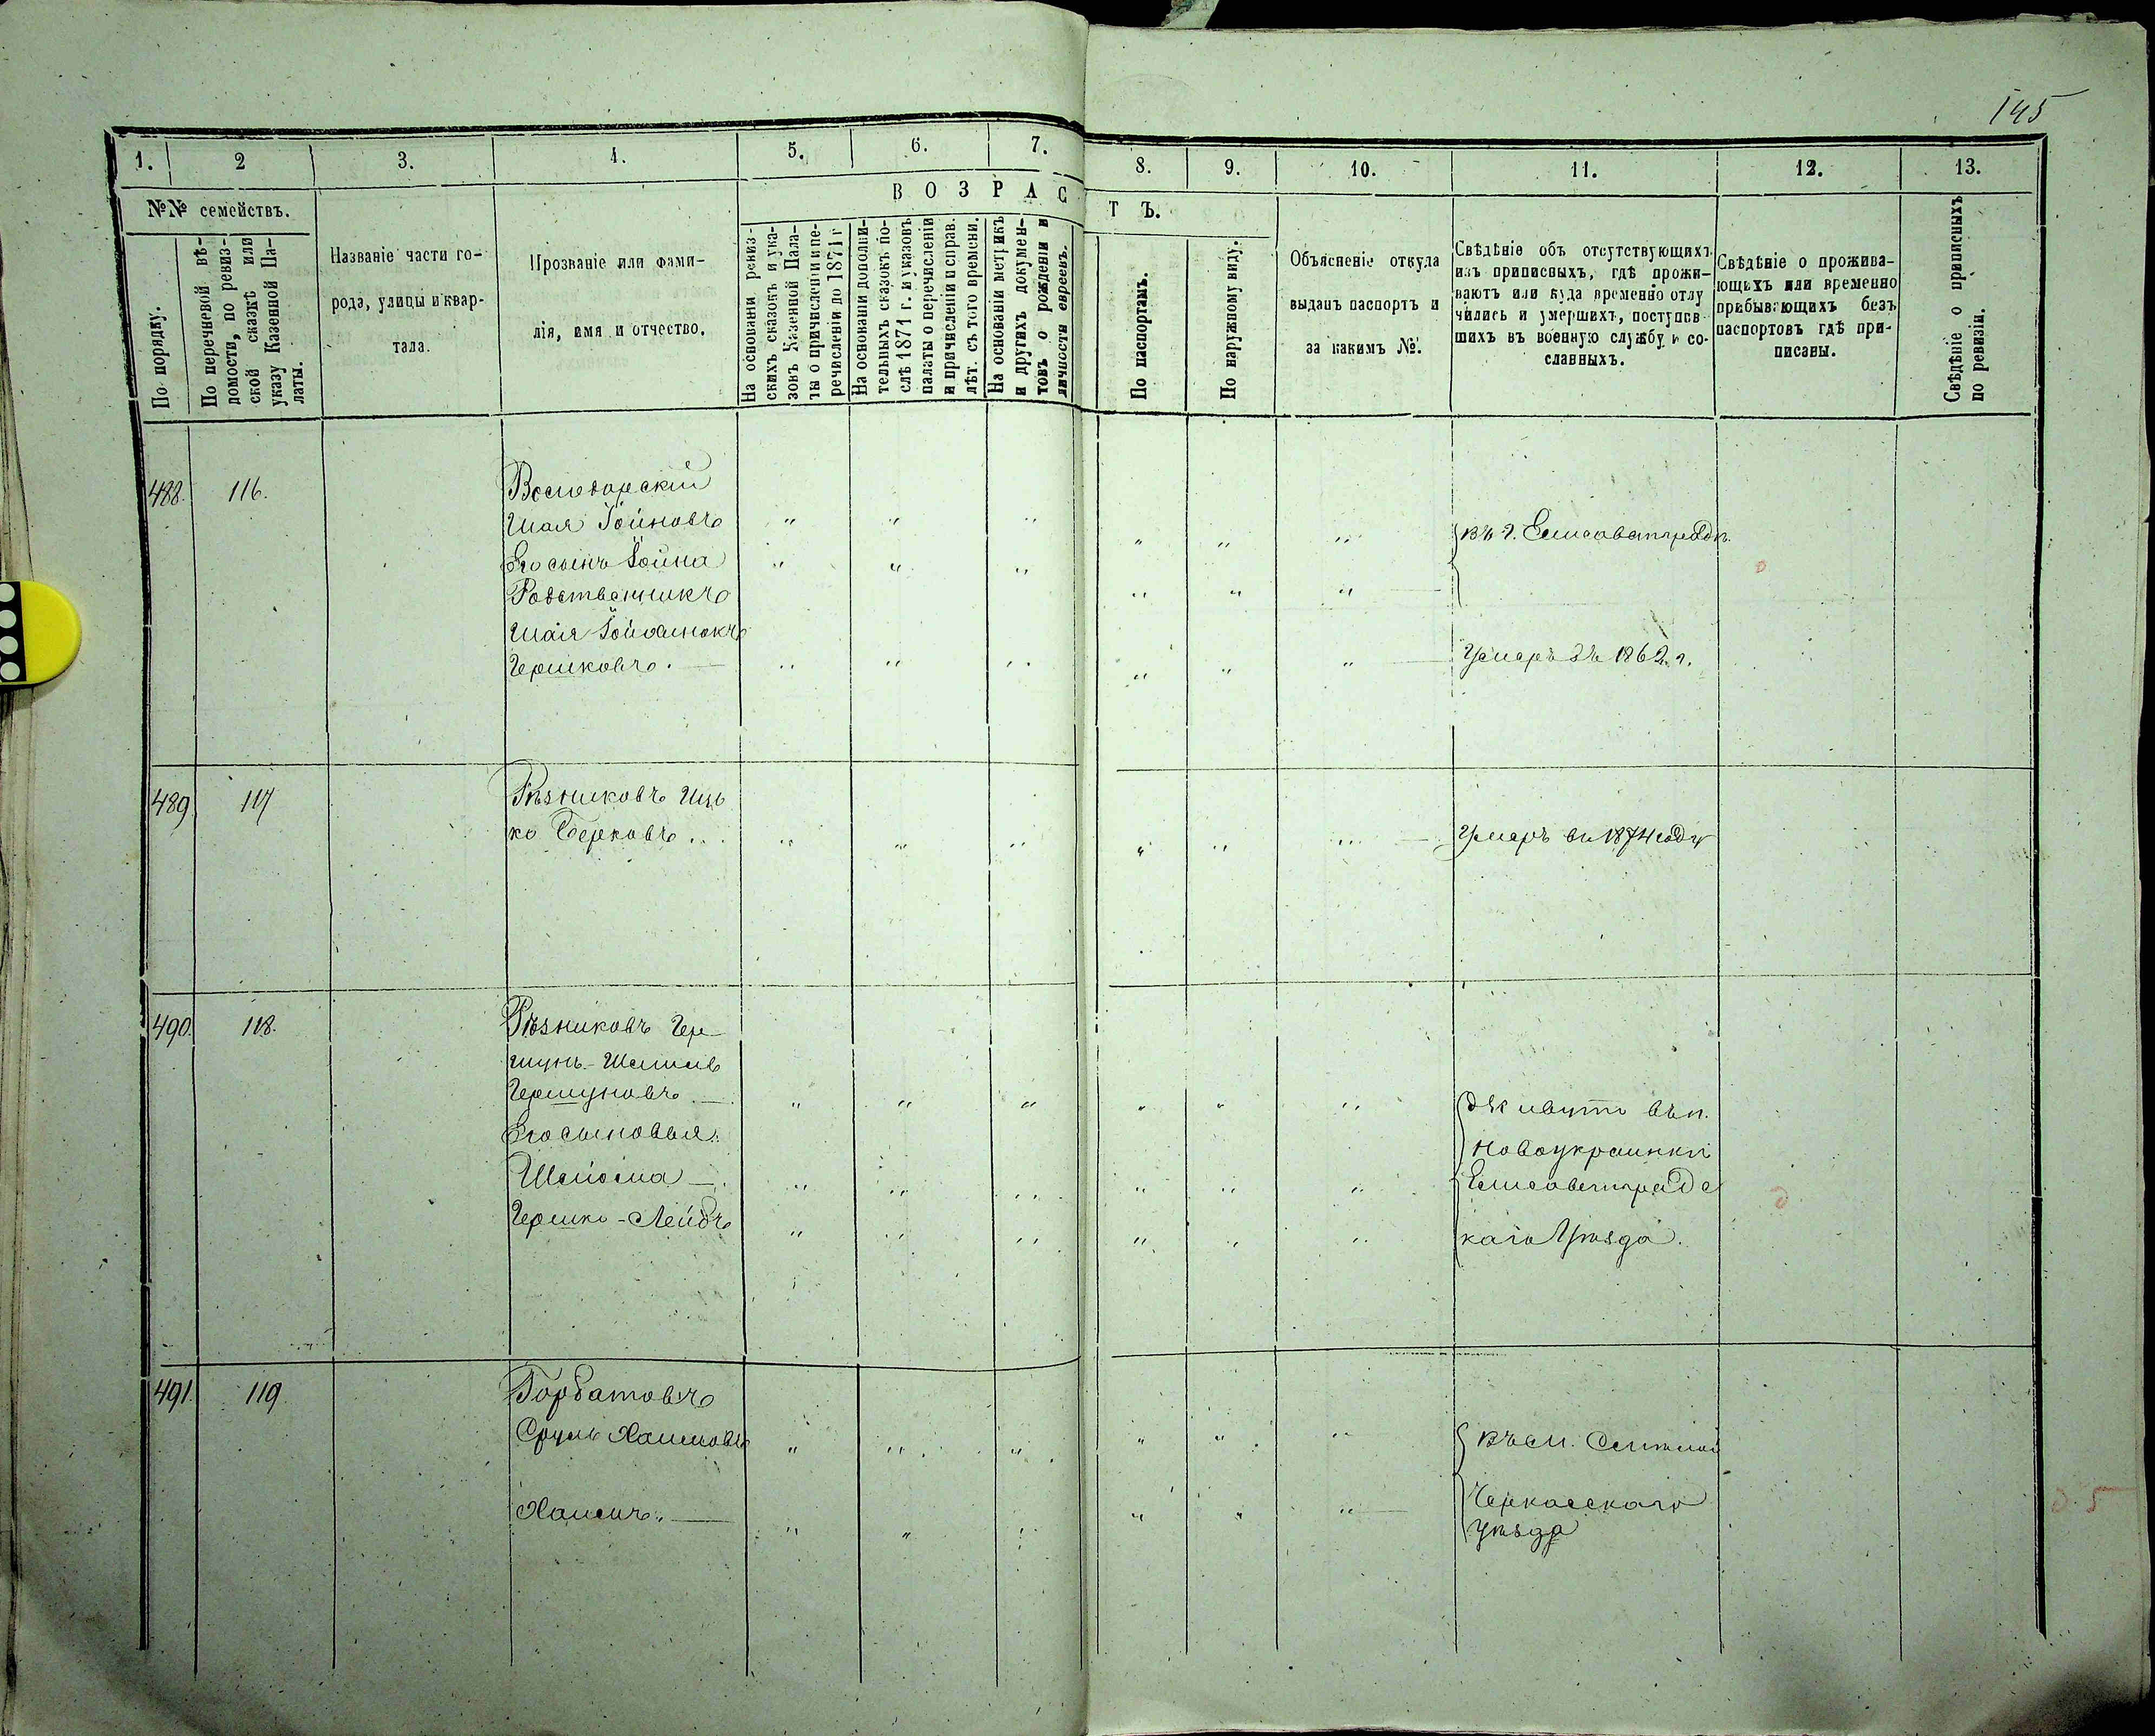 145
1. 2 3. 4. 5. 6. 7. 8. 9. 10. 11. 12. 13.
№№ семействъ.
В О З Р А С Т Ъ.
По порядку.
По перечневой вѣ-
домости, по ревиз-
ской сказкѣ или
указу Казенной Па-
латы.
Названіе части го-
рода, улицы и квар-
тала.
Прозваніе или фами-
лія, имя и отчество.
На основаніи ревиз-
скихъ сказокъ и ука-
зовъ Казенной Пала-
ты о причисленіи и пе-
речисленіи до 1871 г
На основаніи дополни-
тельныхъ сказокъ по-
слѣ 1871 г. и указовъ
палаты о перечисленіи
и причисленіи и справ.
лѣт. съ того времени.
На основаніи метрикъ
и другихъ докумен-
товъ о рожденіи и
личности евреевъ.
По паспортамъ.
По наружному виду.
Объясненіе откуда
выданъ паспортъ и
за какимъ №.
Свѣдѣніе объ отсутствующихъ
изъ приписныхъ, гдѣ прожи-
ваютъ или куда временно отлу
чились и умершихъ, поступив
шихъ въ военную службу и со-
сланныхъ.
Свѣдѣніе о прожива-
ющихъ или временно
пребывающихъ безъ
паспортовъ гдѣ при-
писаны.
Свѣдѣніе о приписныхъ
по ревизіи.
488. 116.
Шая Іойновъ
Его сынъ Іойна
въ г. Елисаветградѣ.
Родственникъ
Шаія
Гершковъ.
Умеръ въ 1862 г.
489 117
Рѣзниковъ Иць
ко Берковъ
Умеръ въ 1874 году
490. 118.
Рѣзниковъ Гер-
шунъ-
Гершуновъ
Его сыновья:
Шлиома
Гершко-Лейбъ
Живутъ въ п.
Новоукраинкѣ
Елисаветградс
каго Уѣзда.
491. 119
Горбатовъ
Сруль Хаимовъ
Хаимъ
въ м.
Черкасскаго
уѣзда